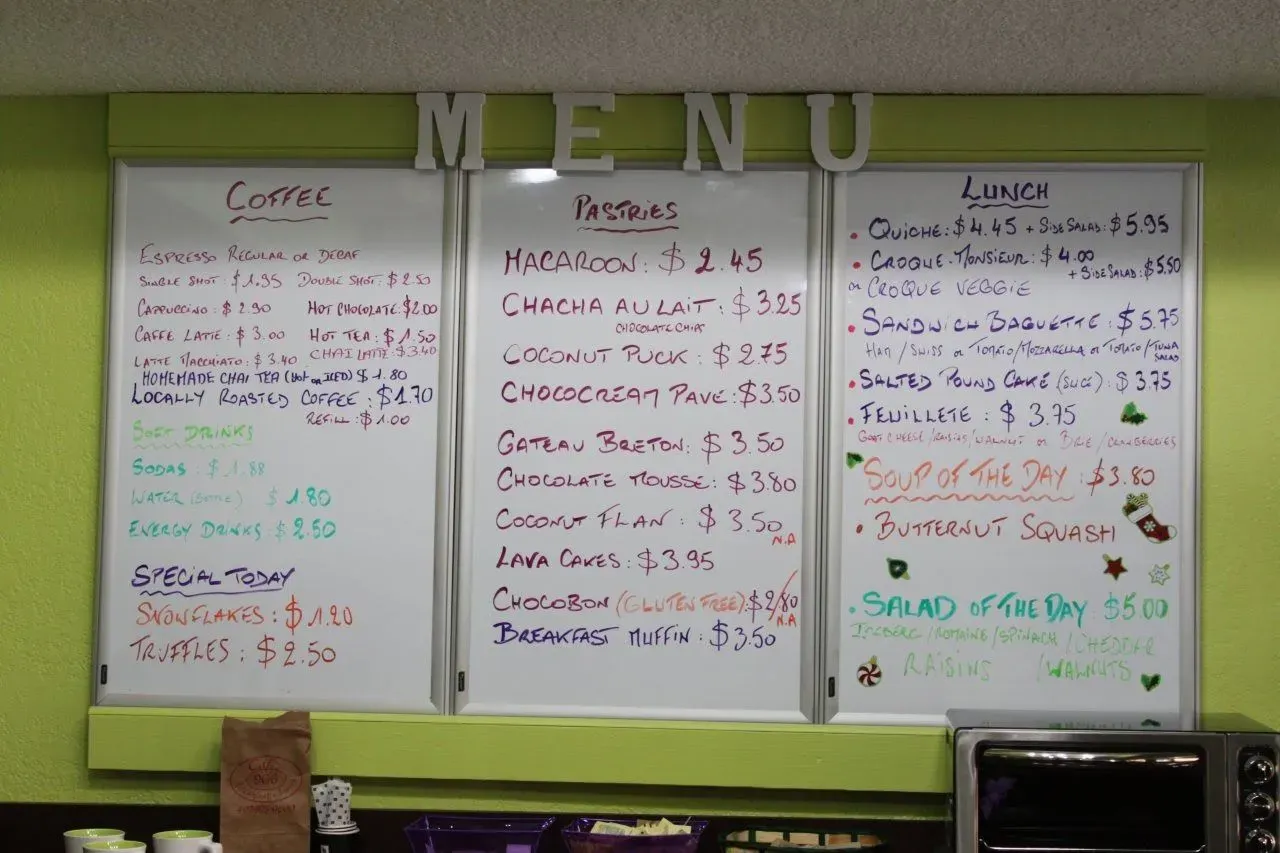 MENU
COFFEE
ESPRESSO REGULAR OR DECAF
SINGLE SHOT : $1.95 DOUBLE SHOT : $2.50
CAPPUCCINO : $2.90 HOT CHOCOLATE : $2.00
CAFFE LATTE : $3.00 HOT TEA : $1.50
LATTE MACCHIATO : $3.40 CHAI LATTE : $3.40
HOMEMADE CHAI TEA (HOT OR ICED) $1.80
LOCALLY ROASTED COFFEE : $1.70
REFILL : $1.00
SOFT DRINKS
SODAS : $1.88
WATER (BOTTLE) $1.80
ENERGY DRINKS : $2.50
SPECIAL TODAY
SNOWFLAKES : $1.20
TRUFFLES : $2.50
PASTRIES
MACAROON : $2.45
CHACHA AU LAIT : $3.25
CHOCOLATE CHIPS
COCONUT PUCK : $2.75
CHOCOCREAM PAVE : $3.50
GATEAU BRETON : $3.50
CHOCOLATE MOUSSE : $3.80
COCONUT FLAN : $3.50
N.A
LAVA CAKES : $3.95
CHOCOBON (GLUTEN FREE) : $2.80
N.A
BREAKFAST MUFFIN : $3.50
LUNCH
• QUICHE : $4.45 + SIDE SALAD : $5.95
• CROQUE-MONSIEUR : $4.00
+ SIDE SALAD : $5.50
OR CROQUE VEGGIE
• SANDWICH BAGUETTE : $5.75
HAM / SWISS OR TOMATO/MOZZARELLA OR TOMATO/TUNA
SALAD
• SALTED POUND CAKE (SLICE) : $3.75
• FEUILLETE : $3.75
GOAT CHEESE/RAISINS/WALNUT OR BRIE/CRANBERRIES
SOUP OF THE DAY : $3.80
• BUTTERNUT SQUASH
• SALAD OF THE DAY $5.00
ICEBERG/ROMAINE/SPINACH/CHEDDAR
RAISINS /WALNUTS